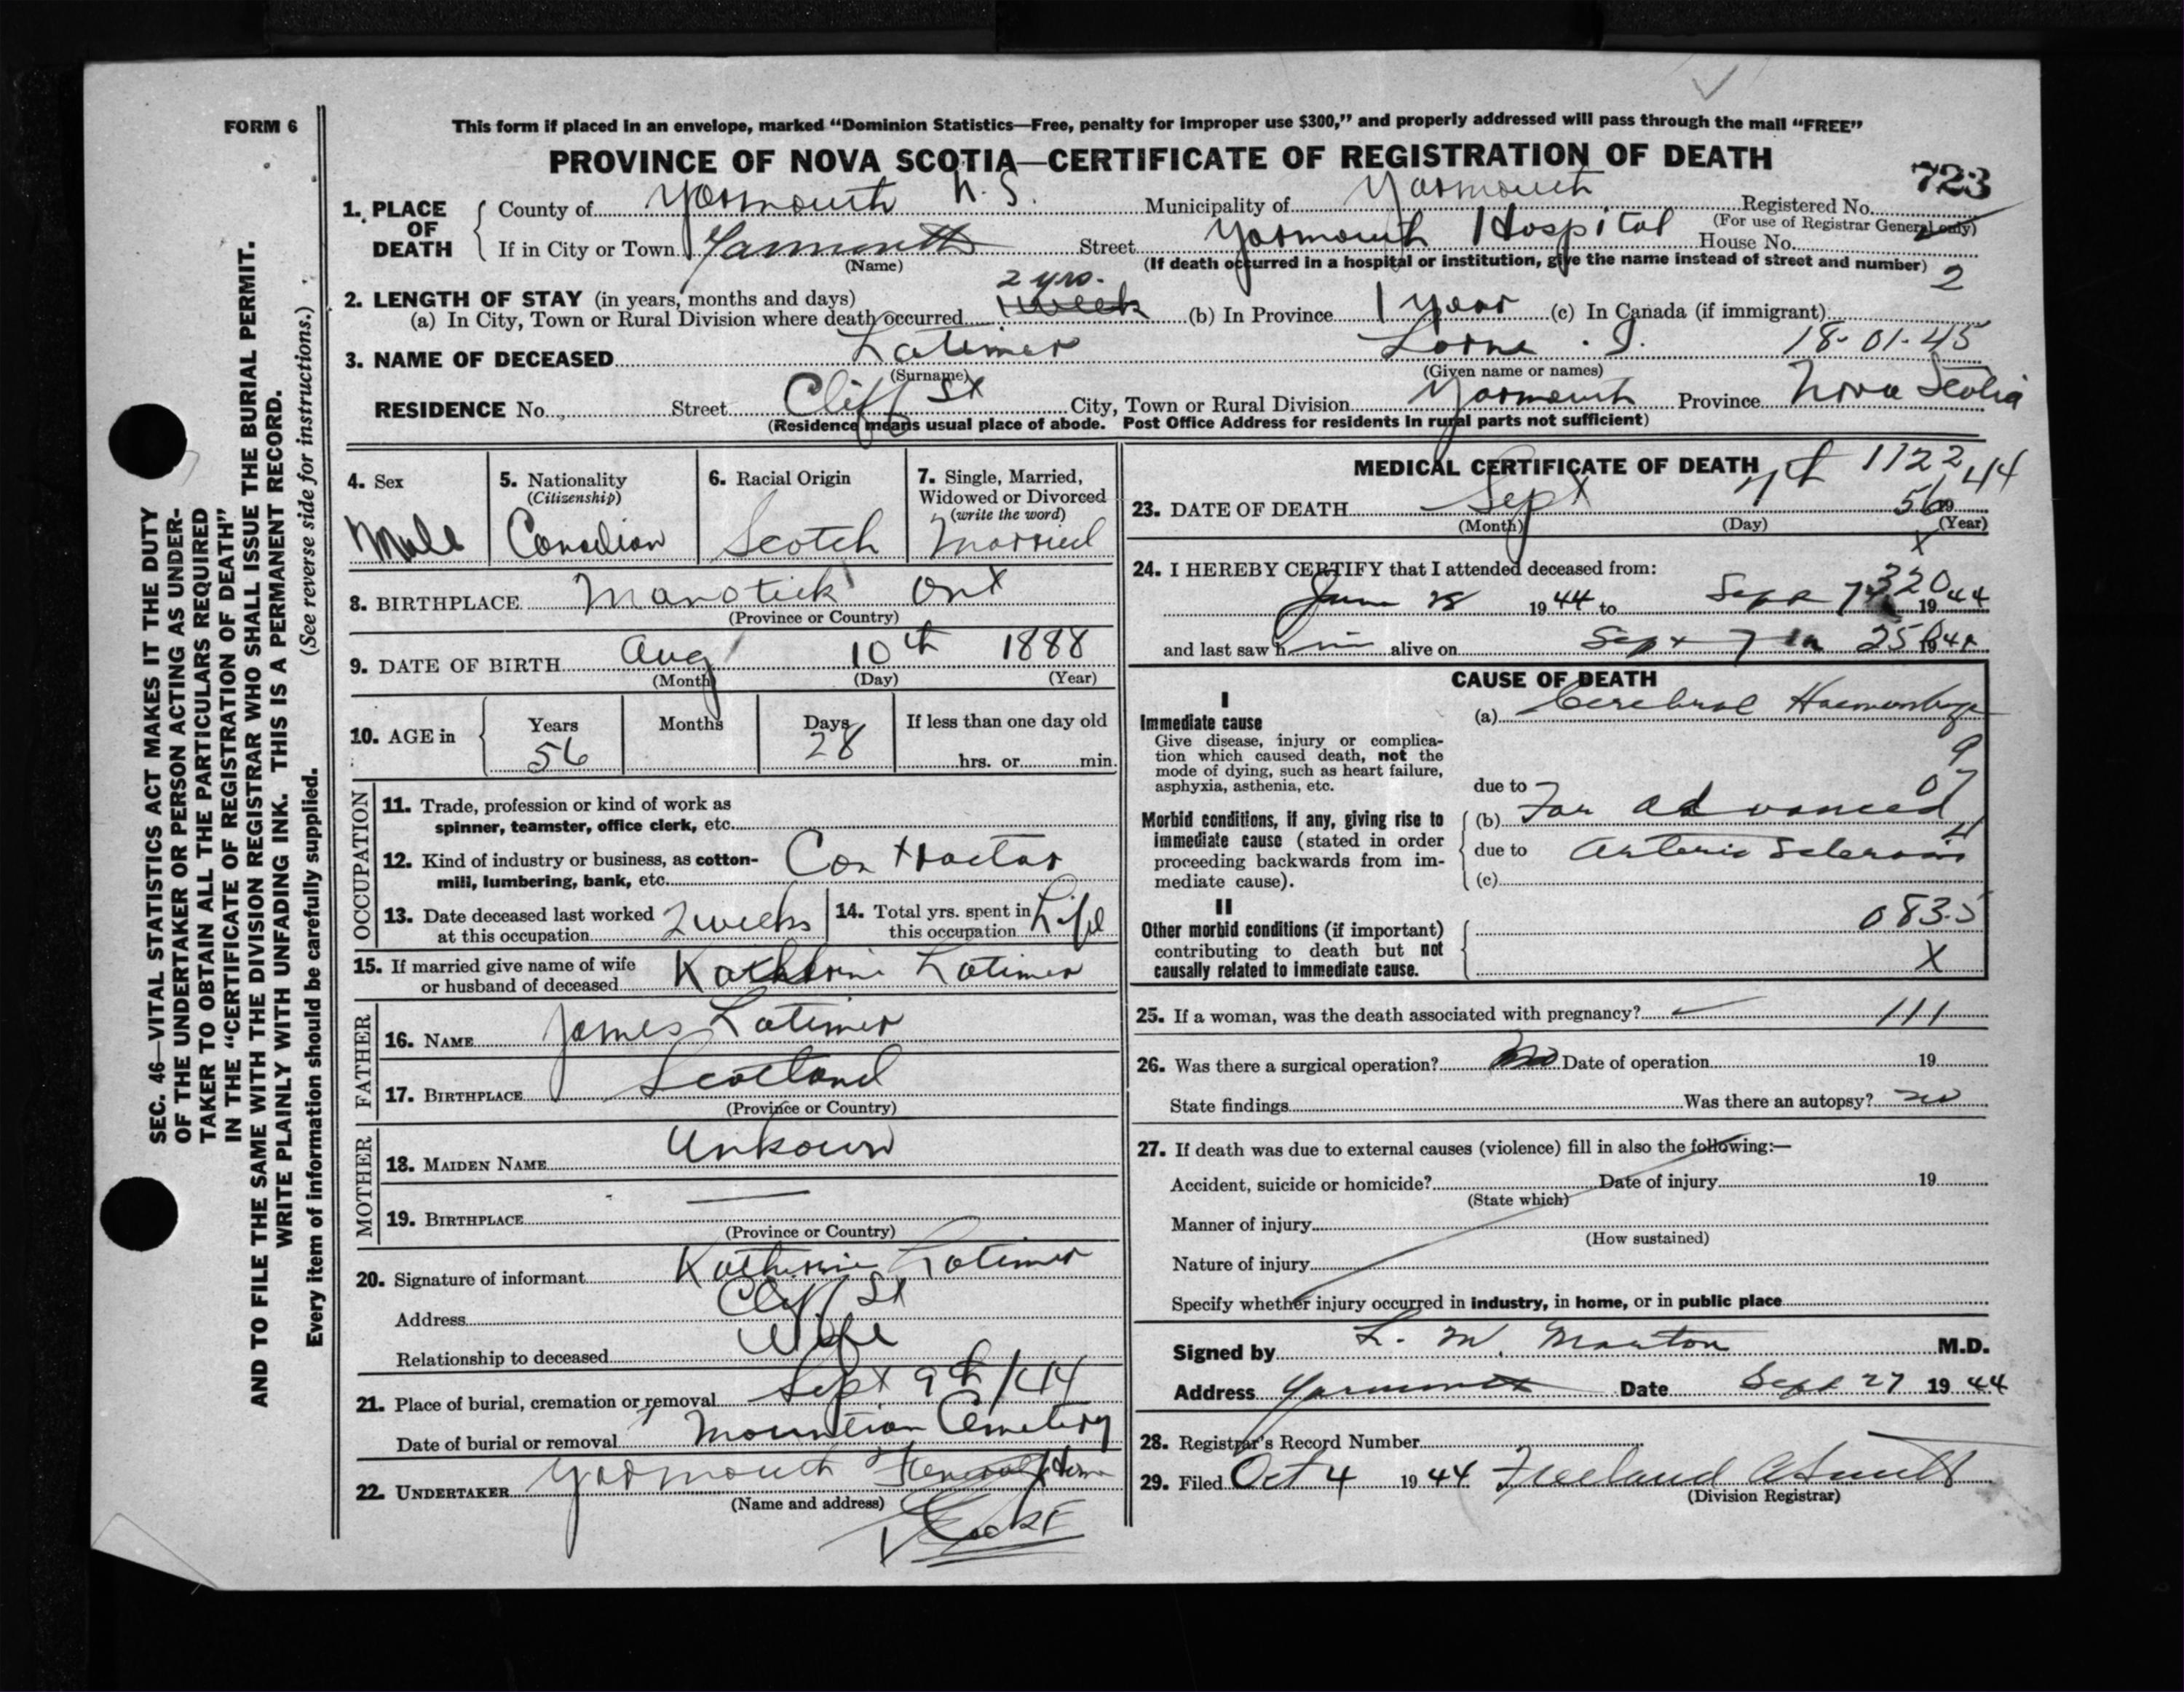 FORM 6
This form if placed in an envelope, marked “Dominion Statistics—Free, penalty for improper use $300,” and properly addressed will pass through the mail “FREE”
PROVINCE OF NOVA SCOTIA—CERTIFICATE OF REGISTRATION OF DEATH
723
1. PLACE OF DEATH
County of Yarmouth N.S. Municipality of Yarmouth Registered No.
(For use of Registrar General only)
If in City or Town Yarmouth Street Yarmouth Hospital House No.
(Name) (If death occurred in a hospital or institution, give the name instead of street and number)
2
2. LENGTH OF STAY (in years, months and days) 2 yrs.
(a) In City, Town or Rural Division where death occurred 1 week (b) In Province 1 year (c) In Canada (if immigrant)
3. NAME OF DECEASED Latimer Lorne . J. 18-01-45
(Surname) (Given name or names)
RESIDENCE No. Street Cliff St City, Town or Rural Division Yarmouth Province Nova Scotia
(Residence means usual place of abode. Post Office Address for residents in rural parts not sufficient)
4. Sex
Male
5. Nationality
(Citizenship)
Canadian
6. Racial Origin
Scotch
7. Single, Married,
Widowed or Divorced
(write the word)
Married
8. BIRTHPLACE Manotick Ont
(Province or Country)
9. DATE OF BIRTH Aug 10th 1888
(Month) (Day) (Year)
10. AGE in
Years Months Days If less than one day old
56 28 hrs. or min.
OCCUPATION
11. Trade, profession or kind of work as
spinner, teamster, office clerk, etc.
12. Kind of industry or business, as cotton-
mill, lumbering, bank, etc. Contractor
13. Date deceased last worked
at this occupation 2 weeks
14. Total yrs. spent in
this occupation Life
15. If married give name of wife
or husband of deceased Katherine Latimer
FATHER
16. NAME James Latimer
17. BIRTHPLACE Scotland
(Province or Country)
MOTHER
18. MAIDEN NAME Unkown
19. BIRTHPLACE —
(Province or Country)
20. Signature of informant Katherine Latimer
Address Cliff St
Relationship to deceased Wife
21. Place of burial, cremation or removal Sept 9th/44
Date of burial or removal Mountian Cemetery
22. UNDERTAKER Yarmouth Funeral Home
(Name and address)
MEDICAL CERTIFICATE OF DEATH
1122
23. DATE OF DEATH Sept 7th 44
56 19
(Month) (Day) (Year)
x
24. I HEREBY CERTIFY that I attended deceased from:
320
June 28 1944 to Sept 7 1944
and last saw him alive on Sept 7 1944
256
CAUSE OF DEATH
I
Immediate cause
Give disease, injury or complica-
tion which caused death, not the
mode of dying, such as heart failure,
asphyxia, asthenia, etc.
(a) Cerebral Haemorhage
9
due to 07
Morbid conditions, if any, giving rise to
immediate cause (stated in order
proceeding backwards from im-
mediate cause).
(b) Far advanced
4
due to Arterio Sclerosis
(c)
II
Other morbid conditions (if important)
contributing to death but not
causally related to immediate cause.
083.5
X
25. If a woman, was the death associated with pregnancy? 111
26. Was there a surgical operation? no Date of operation 19
State findings Was there an autopsy? no
27. If death was due to external causes (violence) fill in also the following:—
Accident, suicide or homicide? Date of injury 19
(State which)
Manner of injury
(How sustained)
Nature of injury
Specify whether injury occurred in industry, in home, or in public place
Signed by L. M. Morton M.D.
Address Yarmouth Date Sept 27 1944
28. Registrar's Record Number
29. Filed Oct 4 1944 Freeland
(Division Registrar)
SEC. 46—VITAL STATISTICS ACT MAKES IT THE DUTY
OF THE UNDERTAKER OR PERSON ACTING AS UNDER-
TAKER TO OBTAIN ALL THE PARTICULARS REQUIRED
IN THE “CERTIFICATE OF REGISTRATION OF DEATH”
AND TO FILE THE SAME WITH THE DIVISION REGISTRAR WHO SHALL ISSUE THE BURIAL PERMIT.
WRITE PLAINLY WITH UNFADING INK. THIS IS A PERMANENT RECORD.
Every item of information should be carefully supplied. (See reverse side for instructions.)